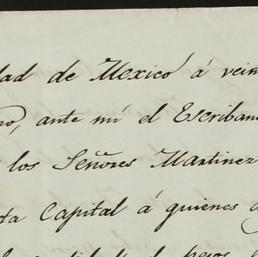 dad de Mexico á vein
no, ante mí el Escriban
los Señores Martinez
ta Capital á quienes